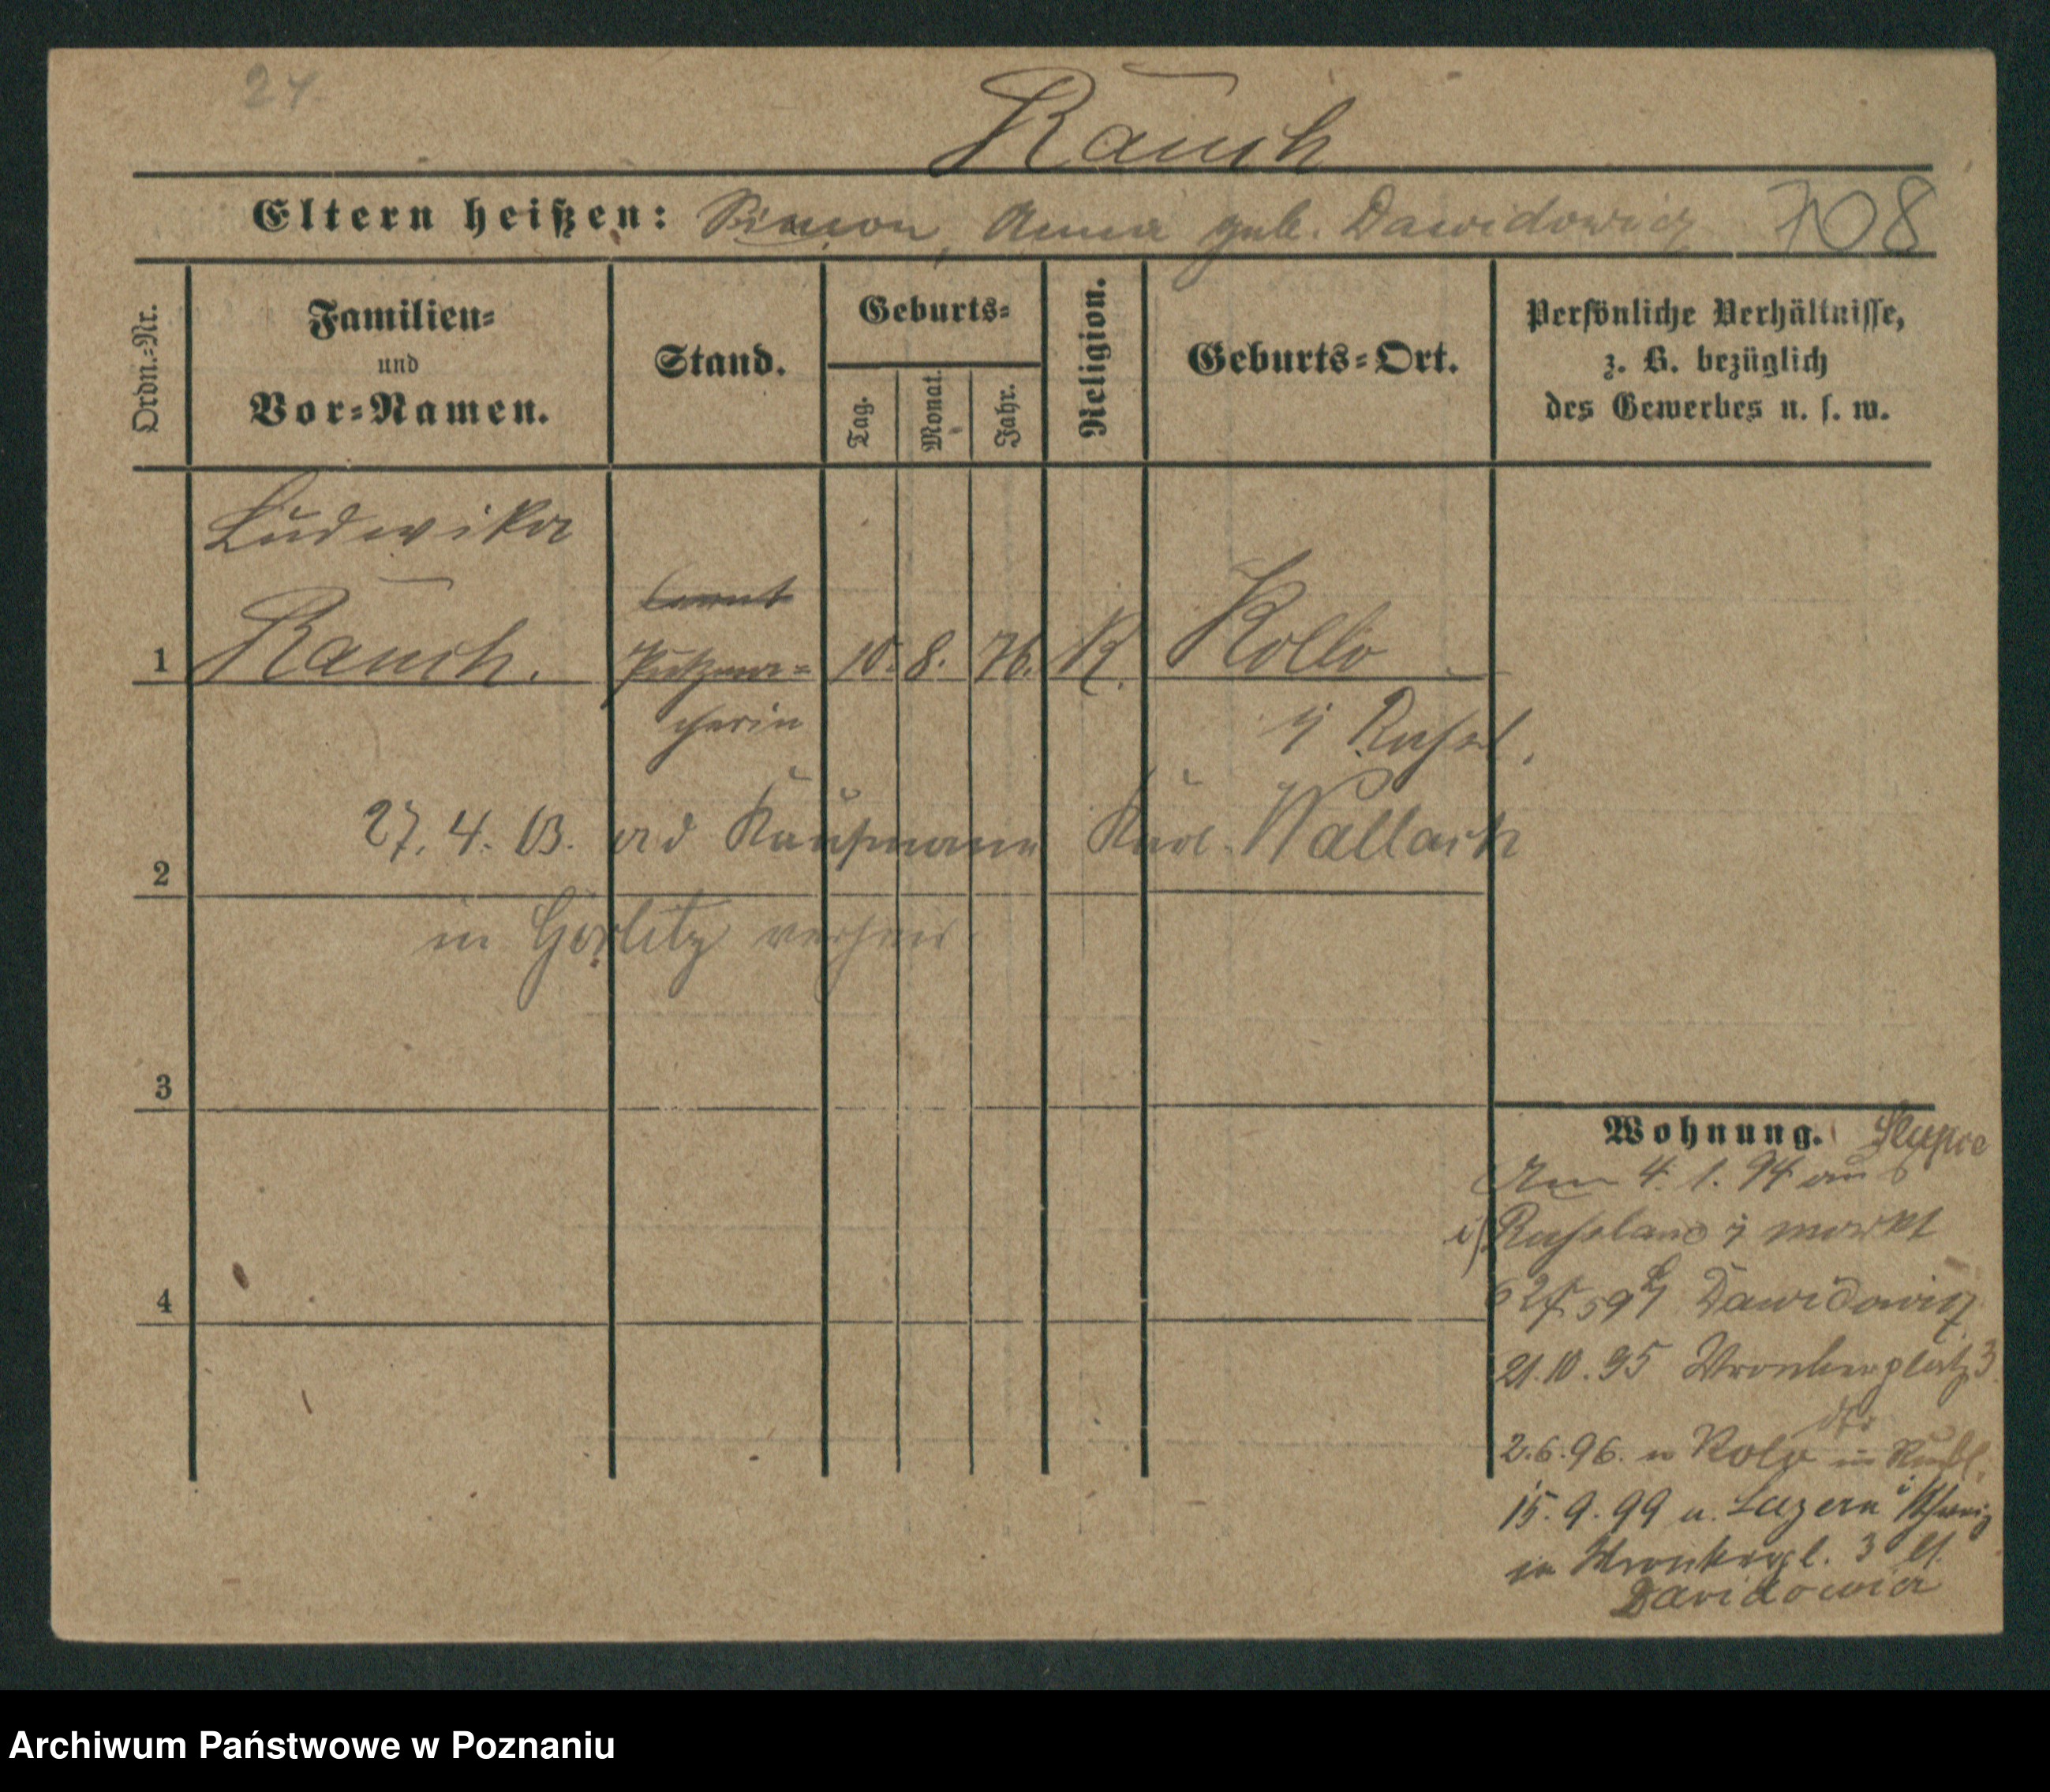 24
Rauch
Eltern heißen: Simon, Anna geb. Dawidowicz 708
Ordn.=Nr.
Familien=
und
Vor=Namen.
Stand.
Geburts=
Tag.
Monat.
Jahr.
Religion.
Geburts=Ort.
Persönliche Verhältnisse,
z. B. bezüglich
des Gewerbes u. s. w.
Ludwika
1 Rauch. Putzma= 10. 8. 76. Kollo
cherin
27. 4. 03. Kaufmann Karl Wallach
2
in Görlitz verheir
3
4
Wohnung. Slupce
Am 4. 1. 94 aus
Russland Markt
Dawidowicz
21. 10. 95 Wronkerplatz 3
2. 6. 96. n Kolo in Russl.
15. 9. 99 a. Luzern i/Schweiz
in Wronkerpl. 3
Davidowicz
Archiwum Państwowe w Poznaniu